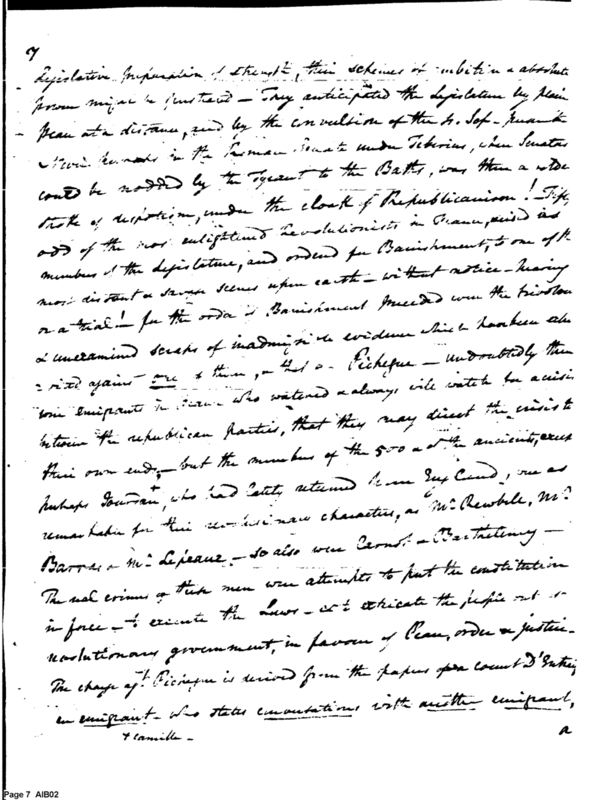 7
Legislative preparation of strength, their schemes of ambition & absolute
power might be frustrated — They anticipated the Legislature by plain
at a distance, and by the convulsion of the
in the Roman Senate under Tiberius, when Senates
could be nodded by the Tyrant to the Baths, was then a
stroke of despotism, under the cloak of Republicanism! — Fifty
odd of the most enlightened Revolutionists in France, seized as
members of the Legislature, and ordered for Banishment, to one of the
most distant & savage scenes upon earth — without notice — hearing
or a trial! — for the order of Banishment preceded even the frivolous
& unexamined scraps of inadmissible evidence which have been
against one of them, & that is — Pichegru — undoubtedly there
were emigrants in France who watched & always will watch for a crisis
between the republican parties, that they may direct the crisis to
their own ends — but the members of the 500 & of the ancients, except
perhaps Jourdan+, who had lately returned from England, were as
remarkable for their revolutionary characters, as Mr. Rewbele, Mr.
Barras or Mr. Lepeaux — so also were Carnot & Barthelemy —
The real crimes of these men were attempts to put the constitution
in force — to execute the Laws — & to extricate the people out of
revolutionary government, in favour of Peace, order & justice.
The charge agt. Pichegru is derived from the papers of a count D'Entraig
an emigrant — who states conversations with another emigrant,
+ Camille —
a
Page 7 AIB02